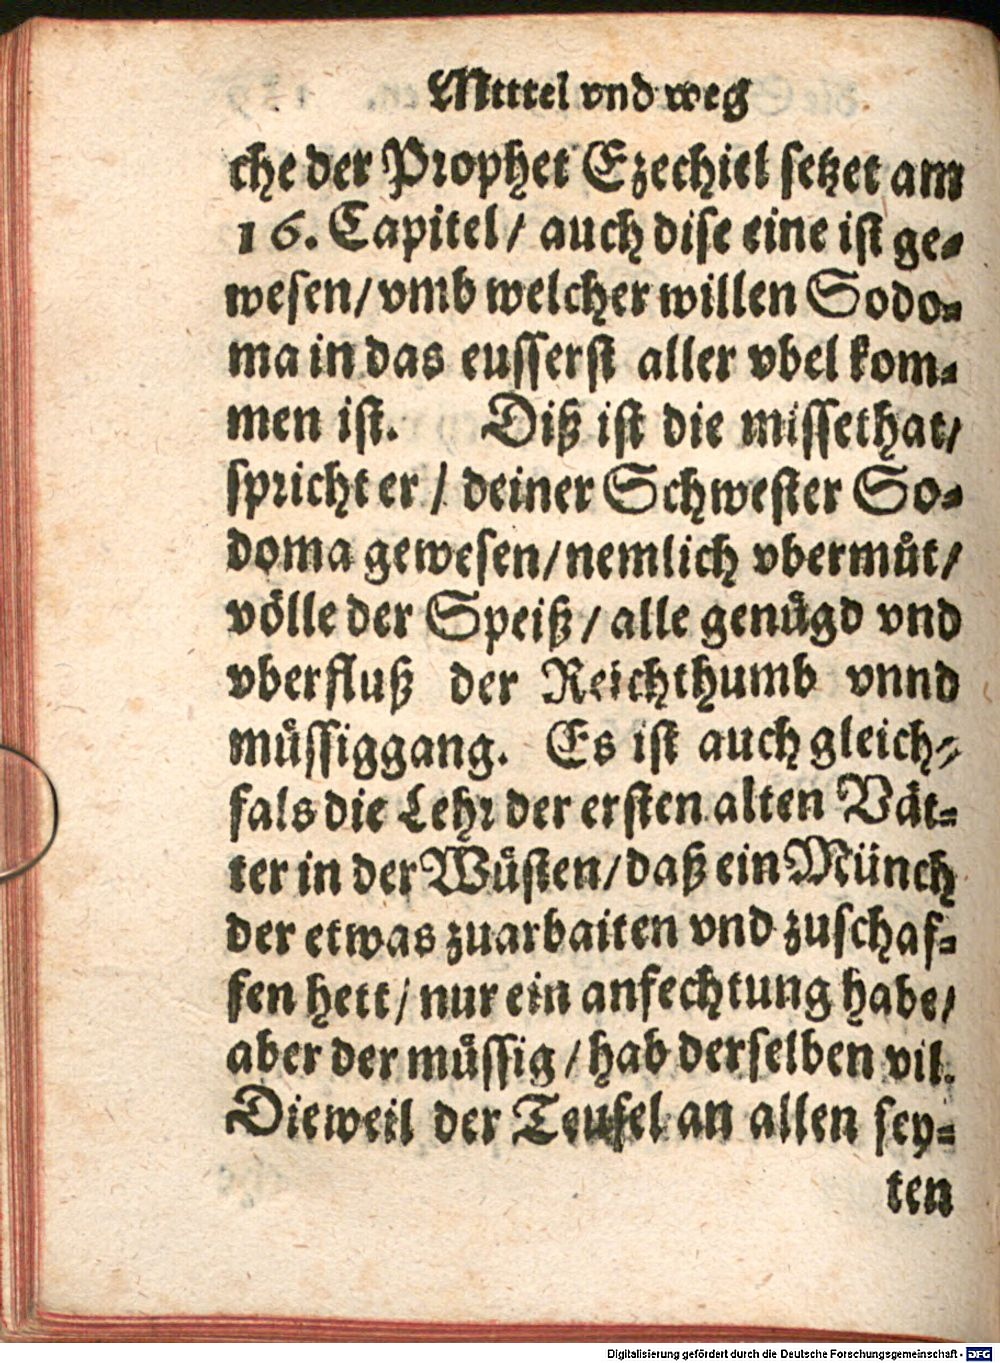 Mittel vnd weg
che der Prophet Ezechiel setzet am
16. Capitel / auch dise eine ist ge-
wesen / vmb welcher willen Sodo-
ma in das eusserst aller vbel kom-
men ist. Diß ist die missethat /
spricht er / deiner Schwester So-
doma gewesen / nemlich vbermuͦt /
voͤlle der Speiß / alle genuͤgd vnd
vberfluß der Reichthumb vnnd
muͤssiggang. Es ist auch gleich-
fals die Lehr der ersten alten Vaͤt-
ter in der Wuͤsten / daß ein Münch
der etwas zuarbaiten vnd zuschaf-
fen hett / nur ein anfechtung habe /
aber der muͤssig / hab derselben vil.
Dieweil der Teufel an allen sey-
ten
Digitalisierung gefördert durch die Deutsche Forschungsgemeinschaft - DFG